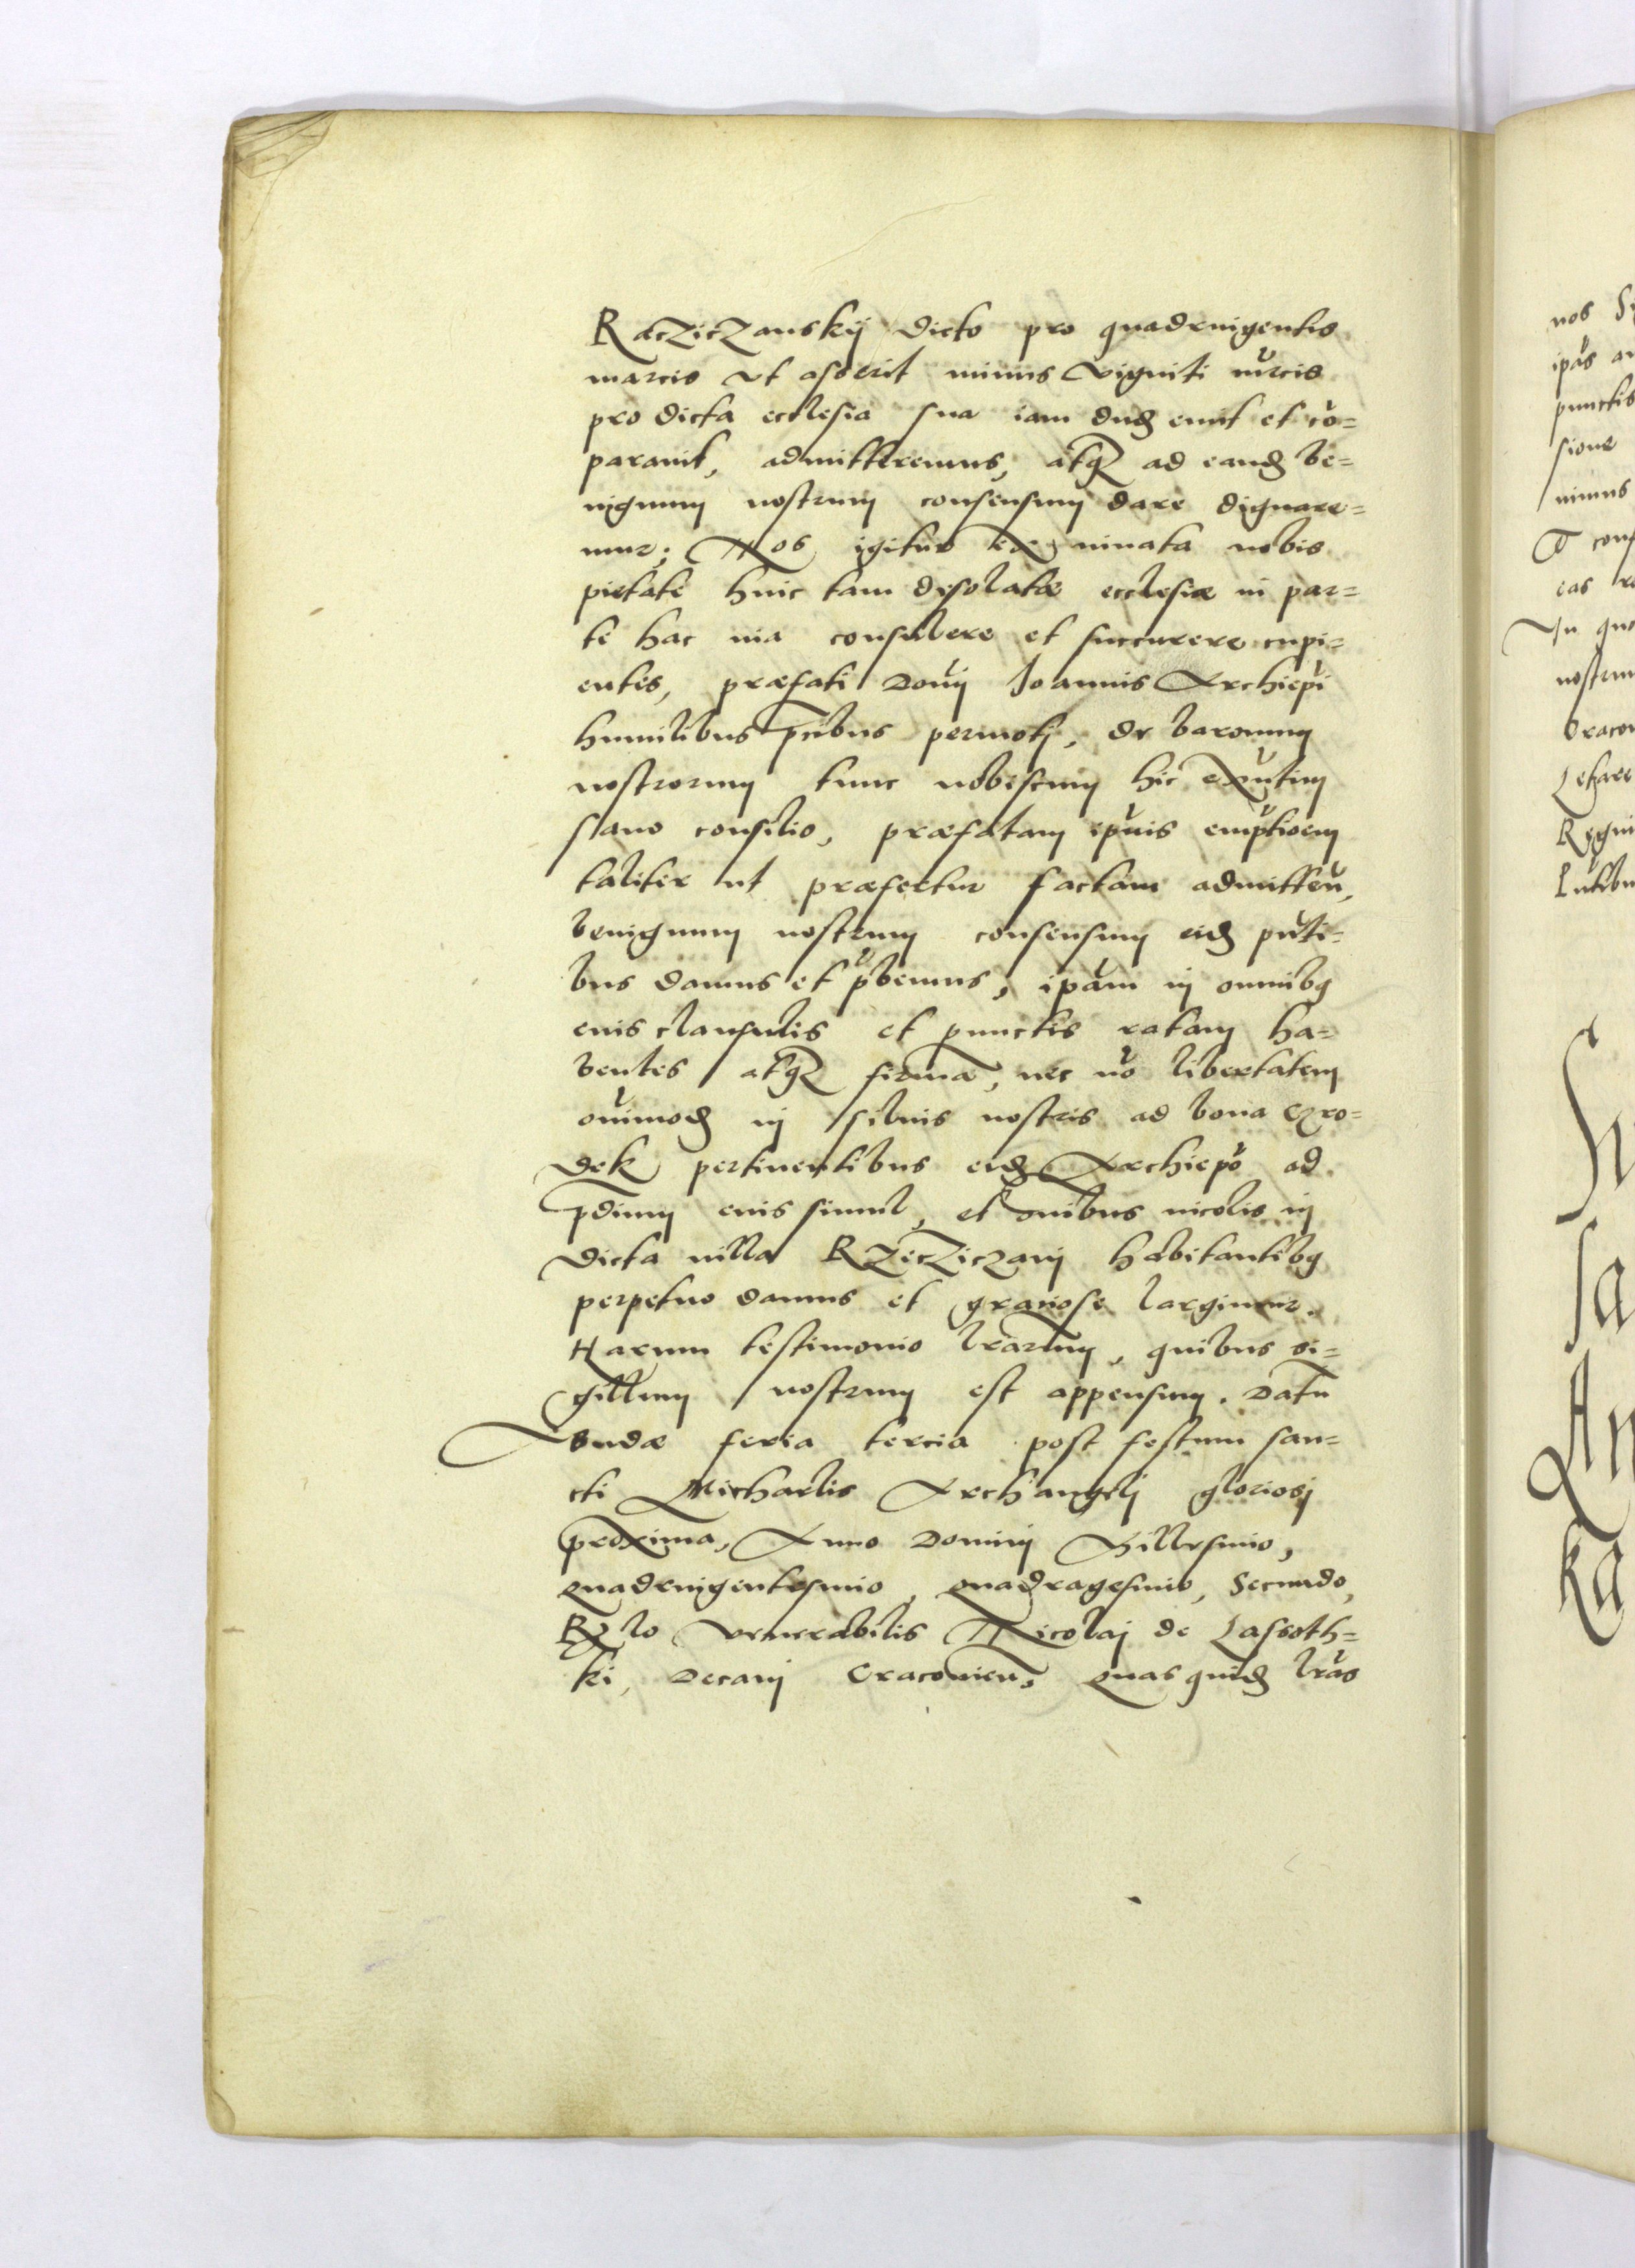 RacziczZanskij dicto pro quadringentis
marcis vt asserit minus viginti mrcis
pro dicta ecclesia sua iam dud emit et co=
parauit, admitteremus, atq ad eand be=
nignum nostrum consensum dare dignare=
mur; Nos igitur ex innata nobis
pietate huic tam desolatæ ecclesiæ in par=
te hac uia consulere et succurere cupi=
entes, præfati Doni Joannis Archiepi
humilibus pcibus permoti, de baronum
nostrorum tunc nobiscum hic exntium
sano consilio, præfatam ipius emptioem
taliter ut præfertur factam admitten,
benignum nostrum consensum eid pnti=
bus damus et pbemus, ipam in omnibq
euis clausulis et punctis ratam ha=
bentes atq firmã, nec nõ libertatem
omimod in siluis nostris ad bona Gro=
dek pertinentibus eid Archiepo ad
pdium euis simul, et omibus incolis in
dicta uilla RzecZiczani habitantibq
perpetuo damus et graciose largimur.
Harum testimonio lrarum, quibus si=
gillum nostrum est appensum. Datu
Budæ feria tercia post festum san=
cti Michaelis Archangeli gloriosi
proxima, Anno Domini Millesimo,
Quadringentesimo, Quadragesimo, Secundo,
Rlo venerabilis Nicolai de Lassoth=
ki, Decani Cracouien, Quas quid lras
nos
ipas
punctis
sione
nimus
eas
nostrum
Regni
sa
An
ka